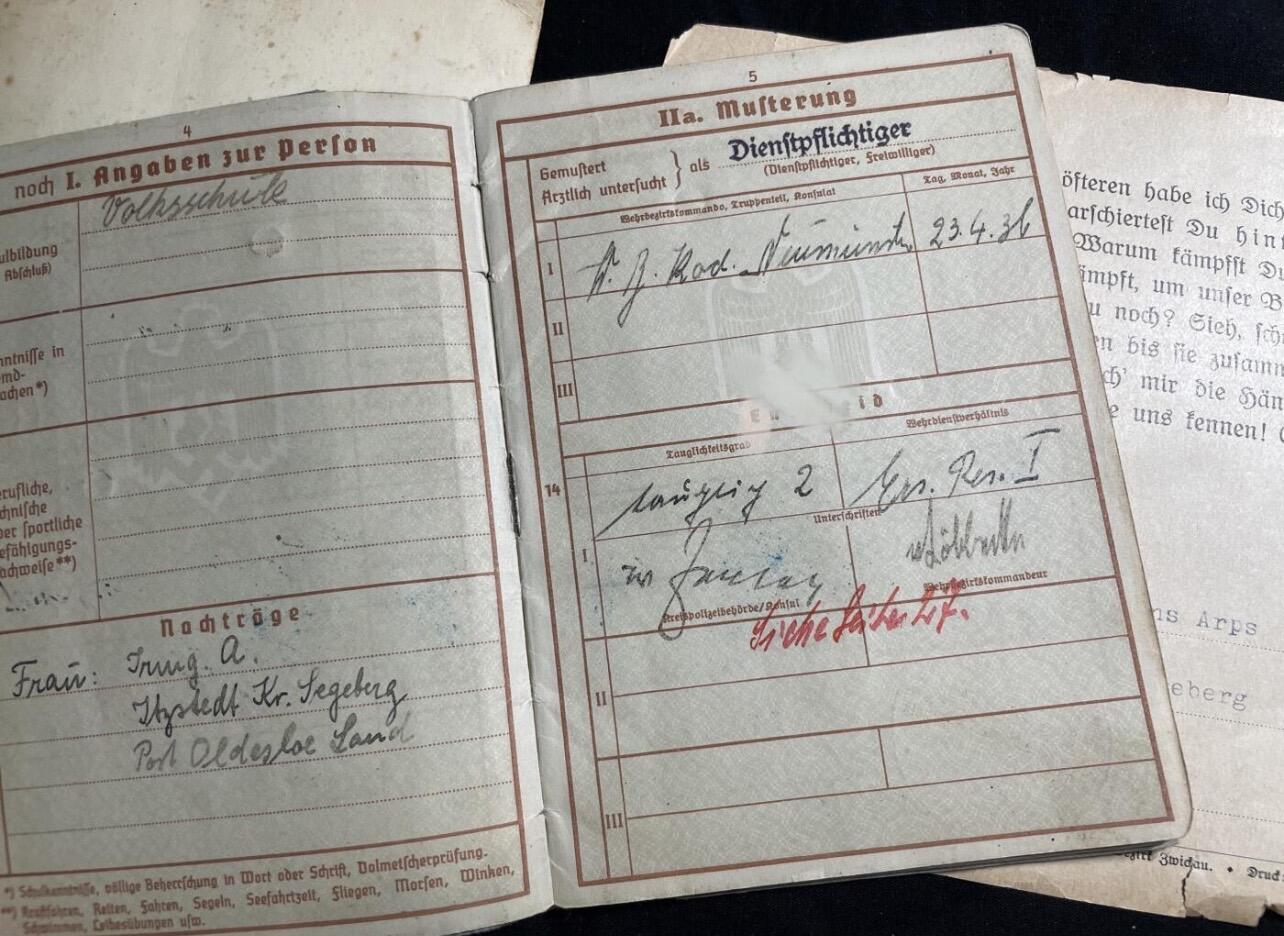 4
noch I. Angaben zur Perſon
Volksschule
ulbildung
Abſchluß)
ntniſſe in
emd-
achen*)
erufliche,
chniſche
der ſportliche
efähigungs-
achweiſe**)
Nachträge
Frau: Irmg. A.
Itzstedt Kr. Segeberg
Post Oldesloe Land
*) Schulkenntniſſe, völlige Beherrſchung in Wort oder Schrift, Dolmetſcherprüfung.
**) Kraftfahren, Reiten, Fahren, Segeln, Seefahrtzeit, Fliegen, Morſen, Winken,
Schwimmen, Leibesübungen uſw.
5
IIa. Muſterung
Gemuſtert
Ärztlich unterſucht } als Dienſtpflichtiger
(Dienſtpflichtiger, Freiwilliger)
Wehrbezirkskommando, Truppenteil, Konſulat
Tag, Monat, Jahr
I
W. B. Kod. Neumünster 23.4.36
II
III
E eid
Tauglichkeitsgrad
Wehrdienſtverhältnis
14
tauglich 2 Ers. Res. I
Unterſchriften
I
Kreispolizeibehörde/Konſul
Wehrbezirkskommandeur
Siehe Seite 27.
II
III
öfteren habe ich Dich
arſchierteſt Du hint
Warum kämpfſt Du
ämpft, um unſer B
u noch? Sieh, ſch
en bis ſie zuſamm
ch' mir die Hän
e uns kennen!
ns Arps
eberg
Bezirk Zwickau. • Druck: